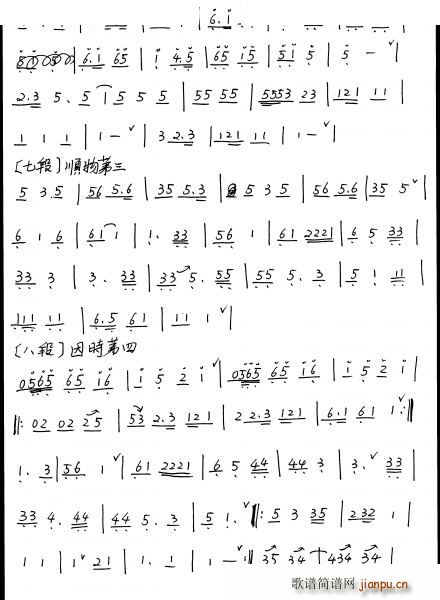 6.1
6.1 65 | 1 4.5 | 65 15 | 51 5 | 5 – ∨ |
2.3 5、5 1 5 5 5 | 55 55 | 5553 23 | 121 11 |
1 1 1 | 1 – ∨ | 3 2.3 | 121 11 | 1 – ∨ |
〔七段〕順物第三
5 3 5 | 56 5.6 | 35 5.3 | 5 3 5 | 56 5.6 | 35 5 ∨ |
6 1 6 | 61 1 | 1. 33 | 56 1 | 61 2221 | 6 5 33 |
33 3 | 3. 33 | 33 5. 55 | 55 5. 3 | 5 1 11 |
111 11 | 6.5 61 | 11 1 ∨ |
〔八段〕因時第四
0565 65 16 | 1 5 2 1 ∨ | 0565 65 16 | 1 5 2 1
‖: 02 02 25 | 53 2.3 121 | 2 2.3 121 | 6.1 61 1 ∨ :‖
1. 3 | 56 1 ∨ | 61 2221 | 6 5 44 | 44 3 | 3. ∨ 33 |
33 4. 44 | 44 5. 3 | 5 1. ∨ ‖: 5 3 35 | 232 1 |
1 1 | 1 ∨ 21 | 1. 1 | 1 – ∨ :‖ 35 34 + 434 34 |
歌谱简谱网
jianpu.cn